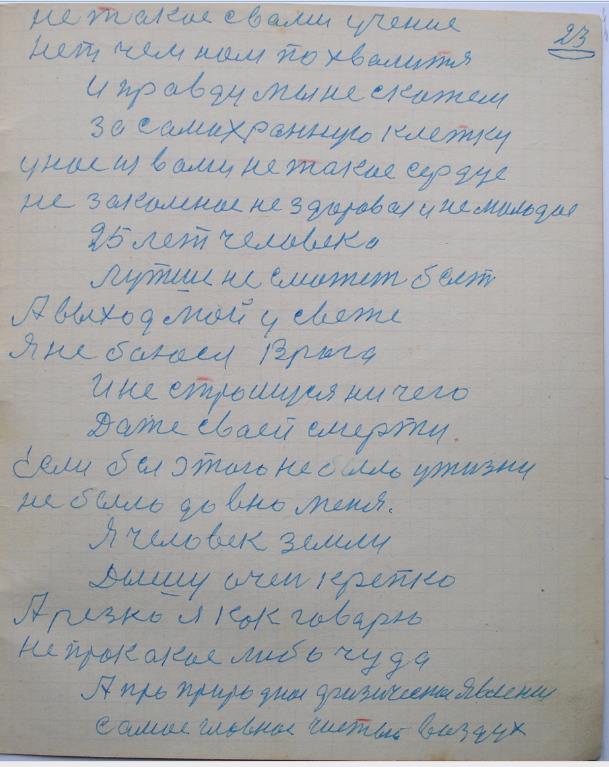 не такое с вами учение
23
нет чем нам похвалится
и правду мы не скажем
за самахранную клетку
у нас из вами не такое сердце
не закалнае не здоровая и не молодое
25 лет человека
лутши не сможет быт
А выход мой у свеже
Я не баюся Врага
И не страшуся ни чего
Даже сваей смерти
Если бы этого не было у жизни
не было давно меня.
Я человек земли
Дышу очен крепко
А резко я как говарю
не про какое либо чуда
А про природное физически явления
самое главное чистый воздух